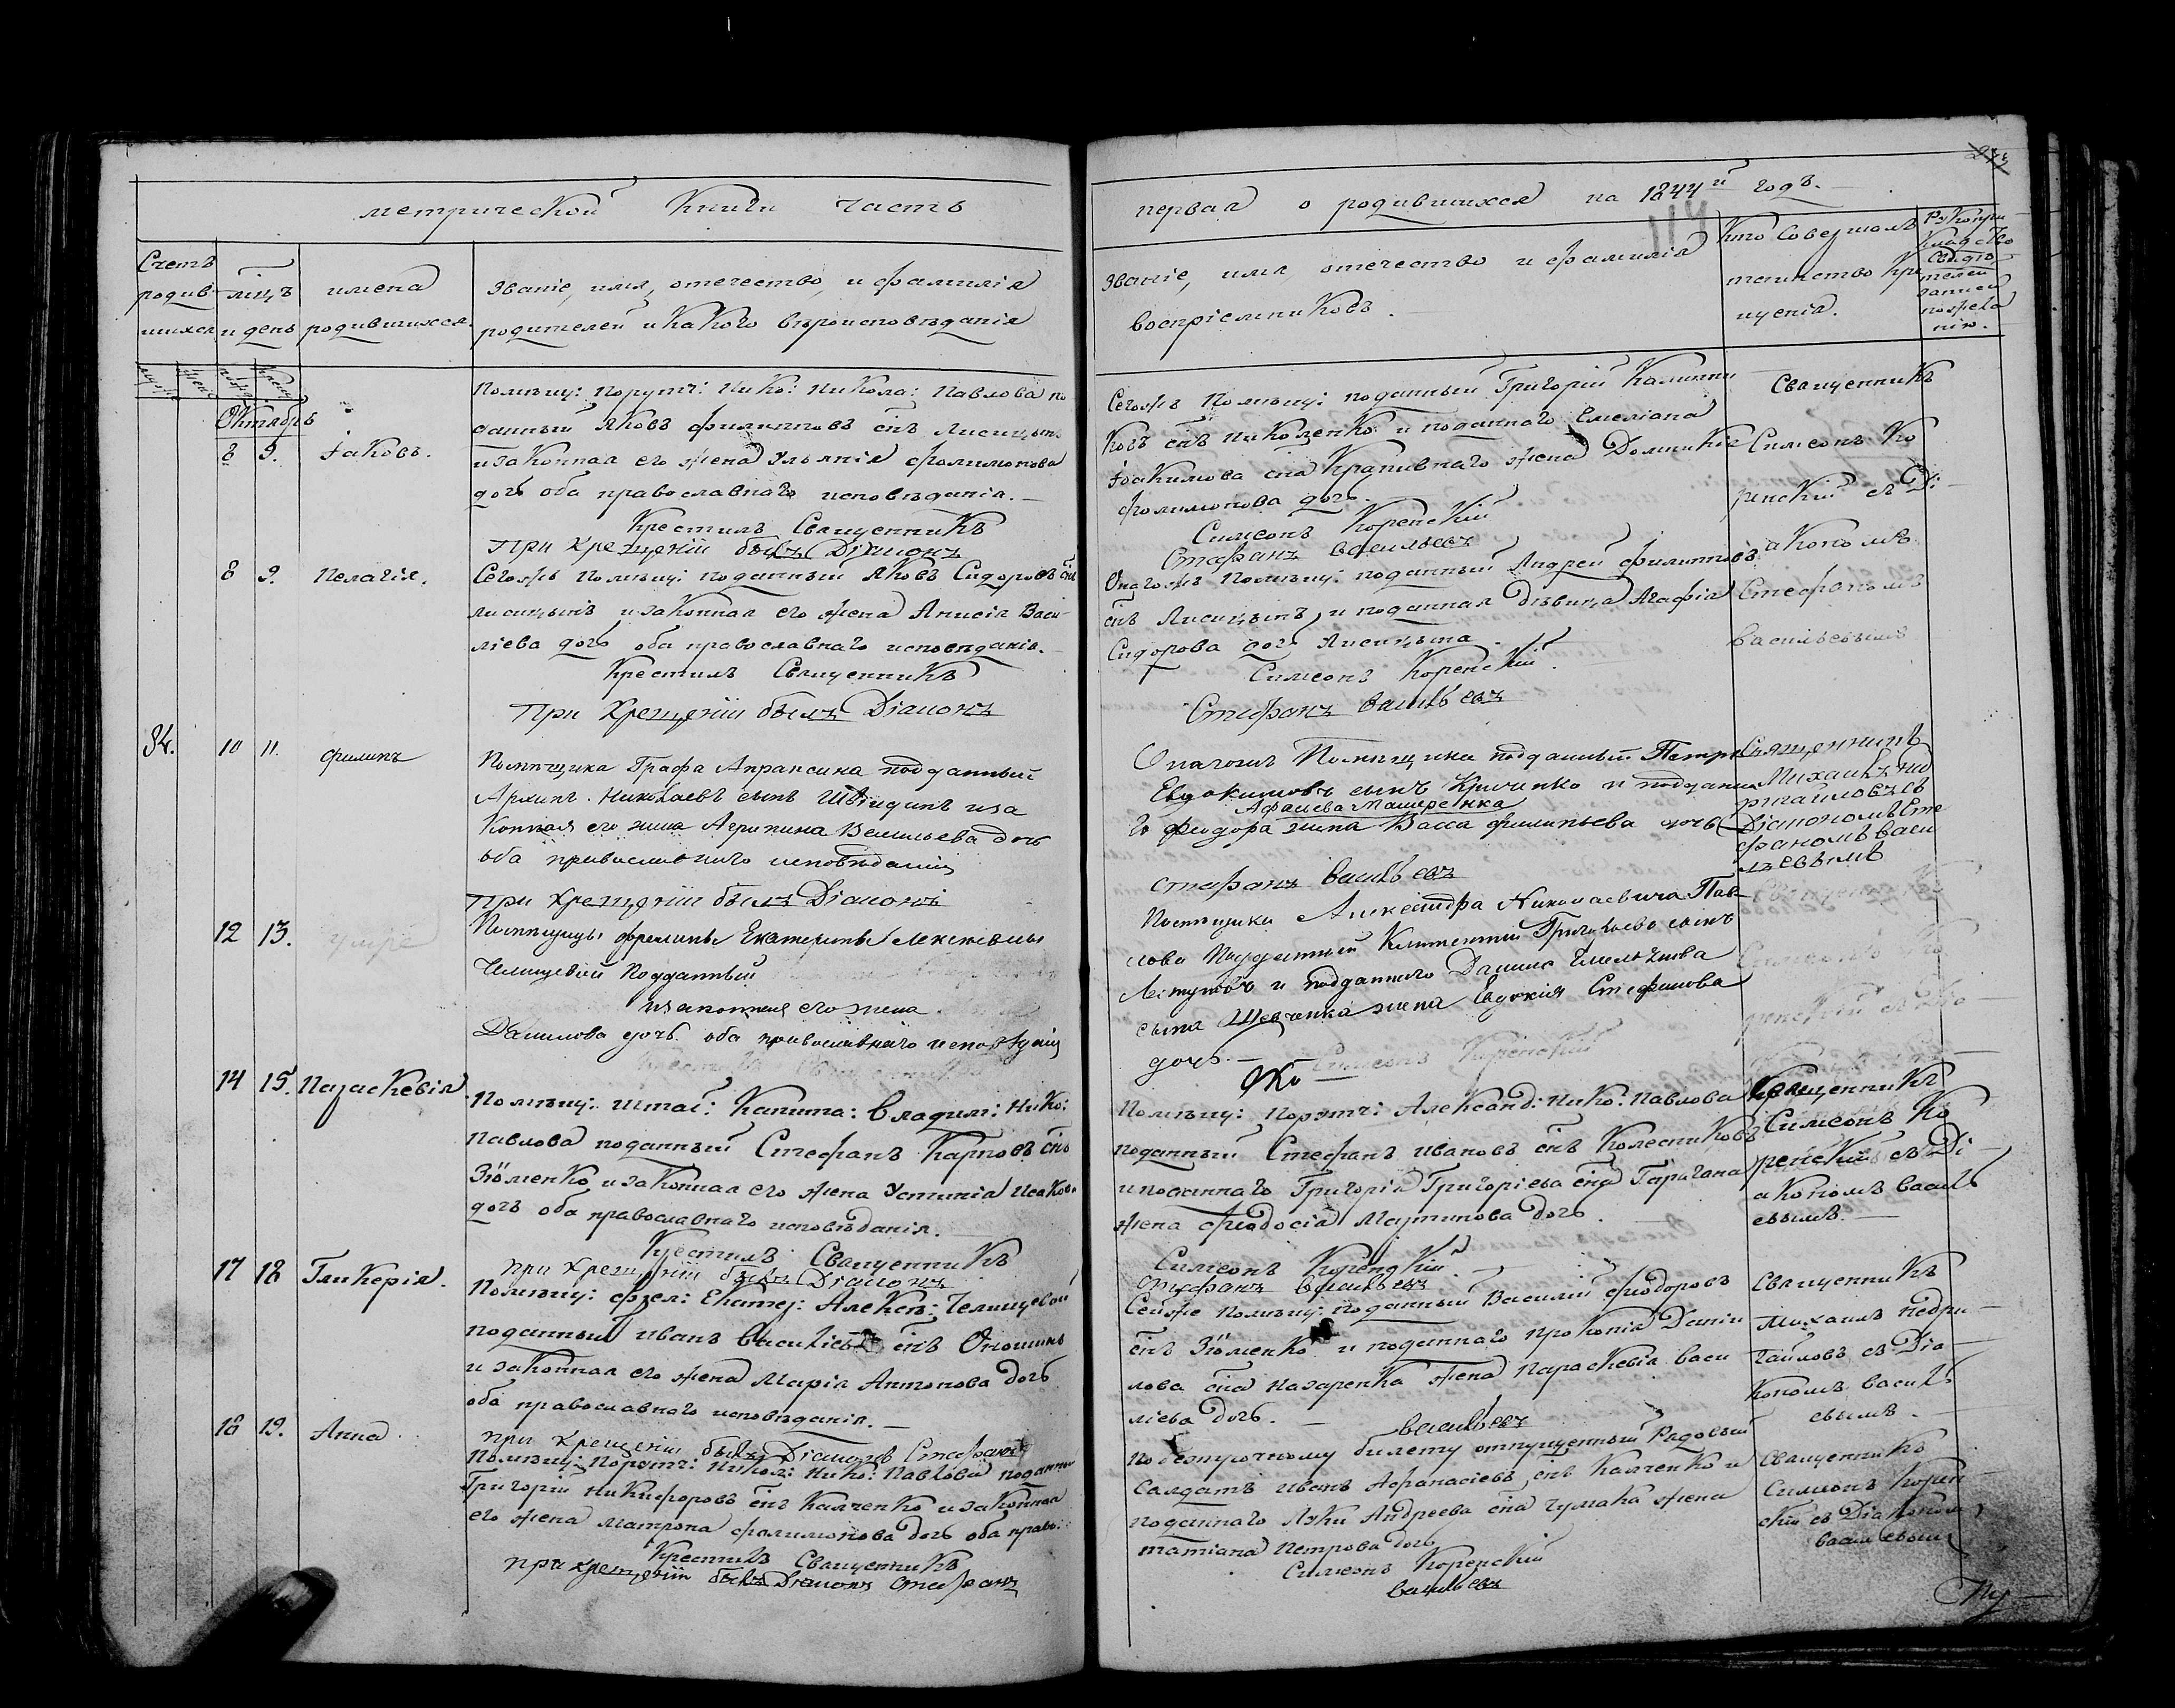 метрической Книги часть
первая о родившихся на 1844й годъ.
114
Счетъ родив-шихся
м-цъ и день
имена родившихся.
Званіе, имя, отечество, и фамилія
родителей и какого вѣроисповѣданія
Званіе, имя, отечество и фамилія
воспріемниковъ.
Кто совершалъ
таинство Кре
щенія.
Рукопри
кладство
свидѣ
телей
записи
по жела
нію.
Октябрь
8 9. Іаковъ.
Помѣщ: Поруч: Нико: Никола: Павлова по
данный Яковъ Филипповъ снъ Лисицынъ
и законная его жена Ульянія Филимонова
дочь оба православнаго исповѣданія.
Крестилъ Священникъ
При Крещеніи былъ Діаконъ
Сегожъ Помѣщ: поданный Григорій
ковъ снъ Николенко и поданнаго Емеліана
Іоакимова сна Крапивнаго жена Домникіа
Филимонова дочь.
Симеонъ Коренскій
Стефанъ Васильевъ
Священникъ
Симеонъ Ко
ренскій съ Ді
акономъ
Стефаномъ
Васильевымъ
8 9. Пелагія.
Сегожъ Помѣщ: поданный Яковъ Сидоровъ снъ
Лисицынъ и законная его жена Анисія Васи-
ліева дочь оба православнаго исповѣданія.
Крестилъ Священникъ
При Крещеніи былъ Діаконъ
Онагожъ Помѣщ: поданный Андрей Филипповъ
снъ Лисицынъ, и поданная дѣвица Агафія
Сидорова дочь Лисицына.
Симеонъ Коренскій.
Стефанъ Васильевъ
34. 10 11. Филипъ
Помѣщика Графа Апраксина подданный
Архипъ Николаевъ сынъ Швидинъ и за
конная его жена Агрипина Васильева дочь
оба православнаго исповѣданія
При Крещеніи былъ Діаконъ
Онагожъ Помѣщика подданный Петръ
Евдокимовъ сынъ Криченко и поддана
го Феодора Афанева Машеренка жена Васса Филипьева дочь
Стефанъ Васильевъ
Священникъ
Михаилъ Не
дригайловъ съ
Діакономъ Сте
фаномъ Васи
льевымъ
12 13.
Помѣщицы Фрелины Екатерины Алексѣвны
Челищевой Подданный
и законная его жена
Данилова дочь оба православнаго исповѣданія
Помѣщика Александра Николаевича Пав-
лова Подданный Климентій Григорьевъ сынъ
и подданнаго Данила Емельянова
сына Шевченка жена Евдокія Стефанова
дочь.
14 15. Параскевія.
Помѣщ: Штаб: Капита: Владим: Нико:
Павлова поданный Стефанъ Карповъ снъ
Зюменко и законная его жена Устинія Исакова
дочь оба православнаго исповѣданія.
Крестилъ Священникъ
При Крещеніи былъ Діаконъ
Помѣщ: Порутч: Александ: Нико: Павлова
поданный Стефанъ Ивановъ снъ Колесниковъ
и поданнаго Григорія Григоріева сна
жена Феодосіа Мартинова дочь.
Симеонъ Коренскій.
Стефанъ Васильевъ
Священникъ
Симеонъ Ко
ренскій съ Ді
акономъ Василь
евымъ.
17 18 Гликерія.
Помѣщ: Фрел: Екатер: Алексѣ: Челищевой
поданный Иванъ Василіевъ снъ
и законная его жена Марія Антонова дочь
оба православнаго исповѣданія.
При Крещеніи былъ Діаконъ Стефанъ
Сейже Помѣщ: поданный Василій Феодоровъ
снъ Зюменко и поданнаго Прокопія Дани
лова сна Назаренка жена Параскевія Васи
ліева дочь.
Васильевъ
Священникъ
Михаилъ Недри
гайловъ съ Діа
кономъ Василь
евымъ.
18 19. Анна.
Помѣщ: Порутч: Никол: Нико: Павлова поданный
Григорій Никифоровъ снъ Калченко и законная
его жена Матрона Филимонова дочь оба право:
Крестилъ Священникъ
При Крещеніи былъ Діаконъ Стефанъ
По безсрочному билету отпущенный Рядовый
Салдатъ Иванъ Афанасіевъ снъ Калченко и
поданнаго Луки Андреева сна Чумака жена
Татіана Петрова дочь
Симеонъ Коренскій
Васильевъ
Священникъ
Симеонъ Корен
скій съ Діакономъ
Васильевымъ